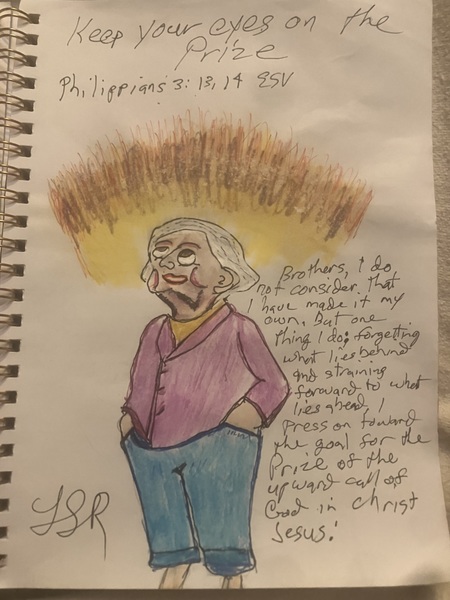 Keep your eyes on the
Prize
Philippians 3: 13, 14 ESV
Brothers, I do
not consider that
I have made it my
own. But one
thing I do; forgetting
what lies behind
and straining
forward to what
lies ahead, I
Press on toward
the goal for the
Prize of the
upward call of
God in Christ
Jesus!
LSR